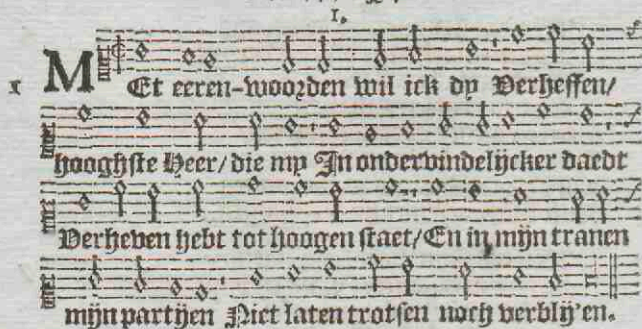 I.
1 MEt eeren-woorden wil ick dy Verheffen/
hooghste Heer/ die my In ondervindelijcker daedt
Verheven hebt tot hoogen staet/ En in mijn tranen
mijn partijen Niet laten trotsen noch verblij'en.